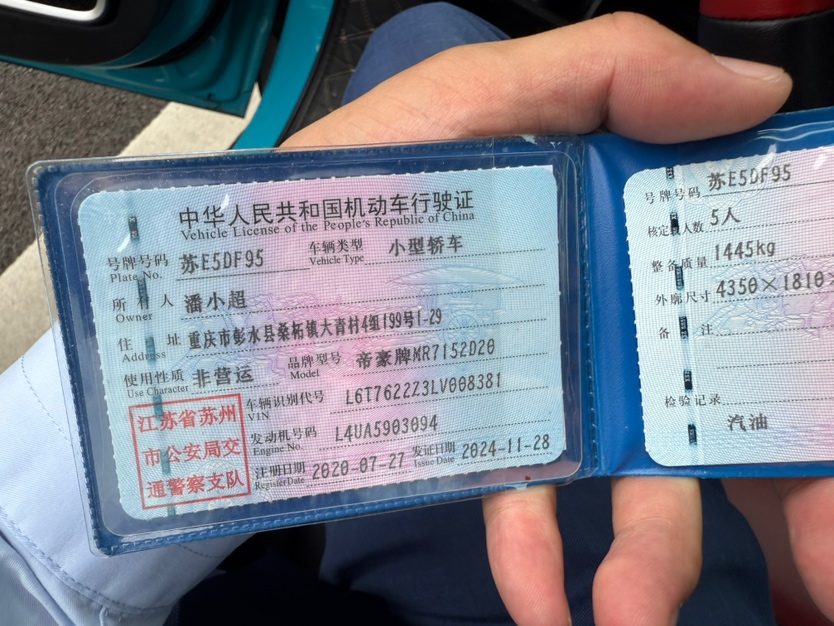 中华人民共和国机动车行驶证
Vehicle License of the People's Republic of China
号牌号码 苏E5DF95 车辆类型 小型轿车
Plate No. Vehicle Type
所有人 潘小超
Owner
住址 重庆市彭水县桑柘镇大青村4组199号1-29
Address
使用性质 非营运 品牌型号 帝豪牌MR7152D20
Use Character Model
车辆识别代号 L6T7622Z3LV008381
VIN
发动机号码 L4UA5903094
Engine No.
注册日期 2020-07-27 发证日期 2024-11-28
Register Date Issue Date
江苏省苏州
市公安局交
通警察支队
号牌号码 苏E5DF95
核定人数 5人
整备质量 1445kg
外廓尺寸 4350×1810×
备注
检验记录
汽油